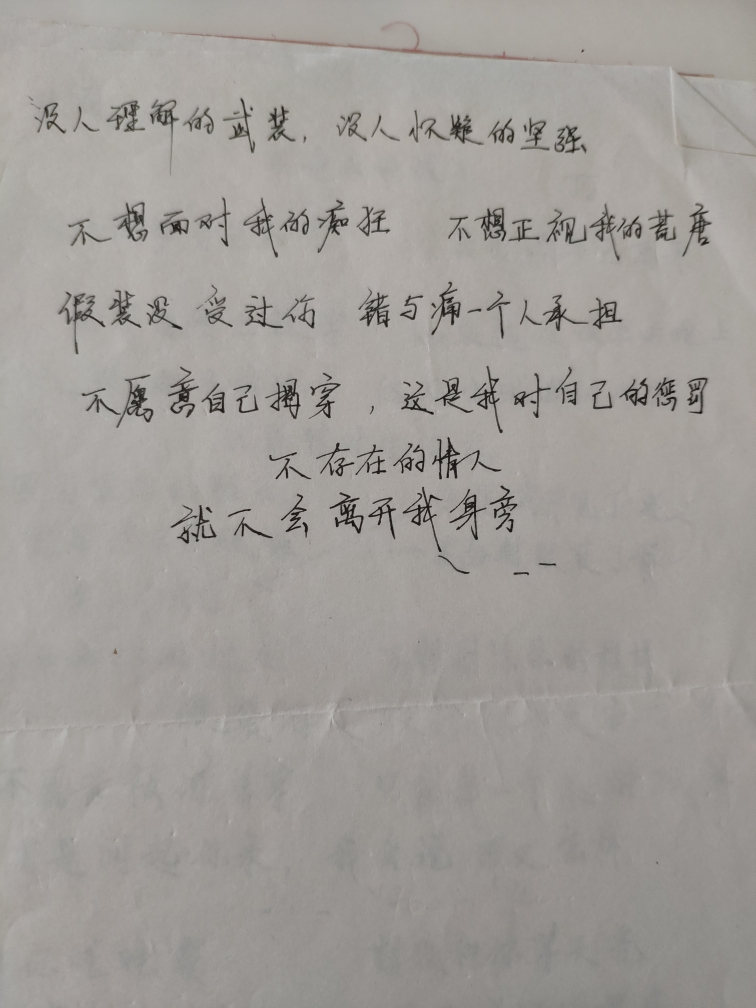 没人理解的武装，没人怀疑的坚强
不想面对我的痴狂 不想正视我的荒唐
假装没受过伤 错与痛一个人承担
不愿意自己揭穿，这是我对自己的惩罚
不存在的情人
就不会离开我身旁